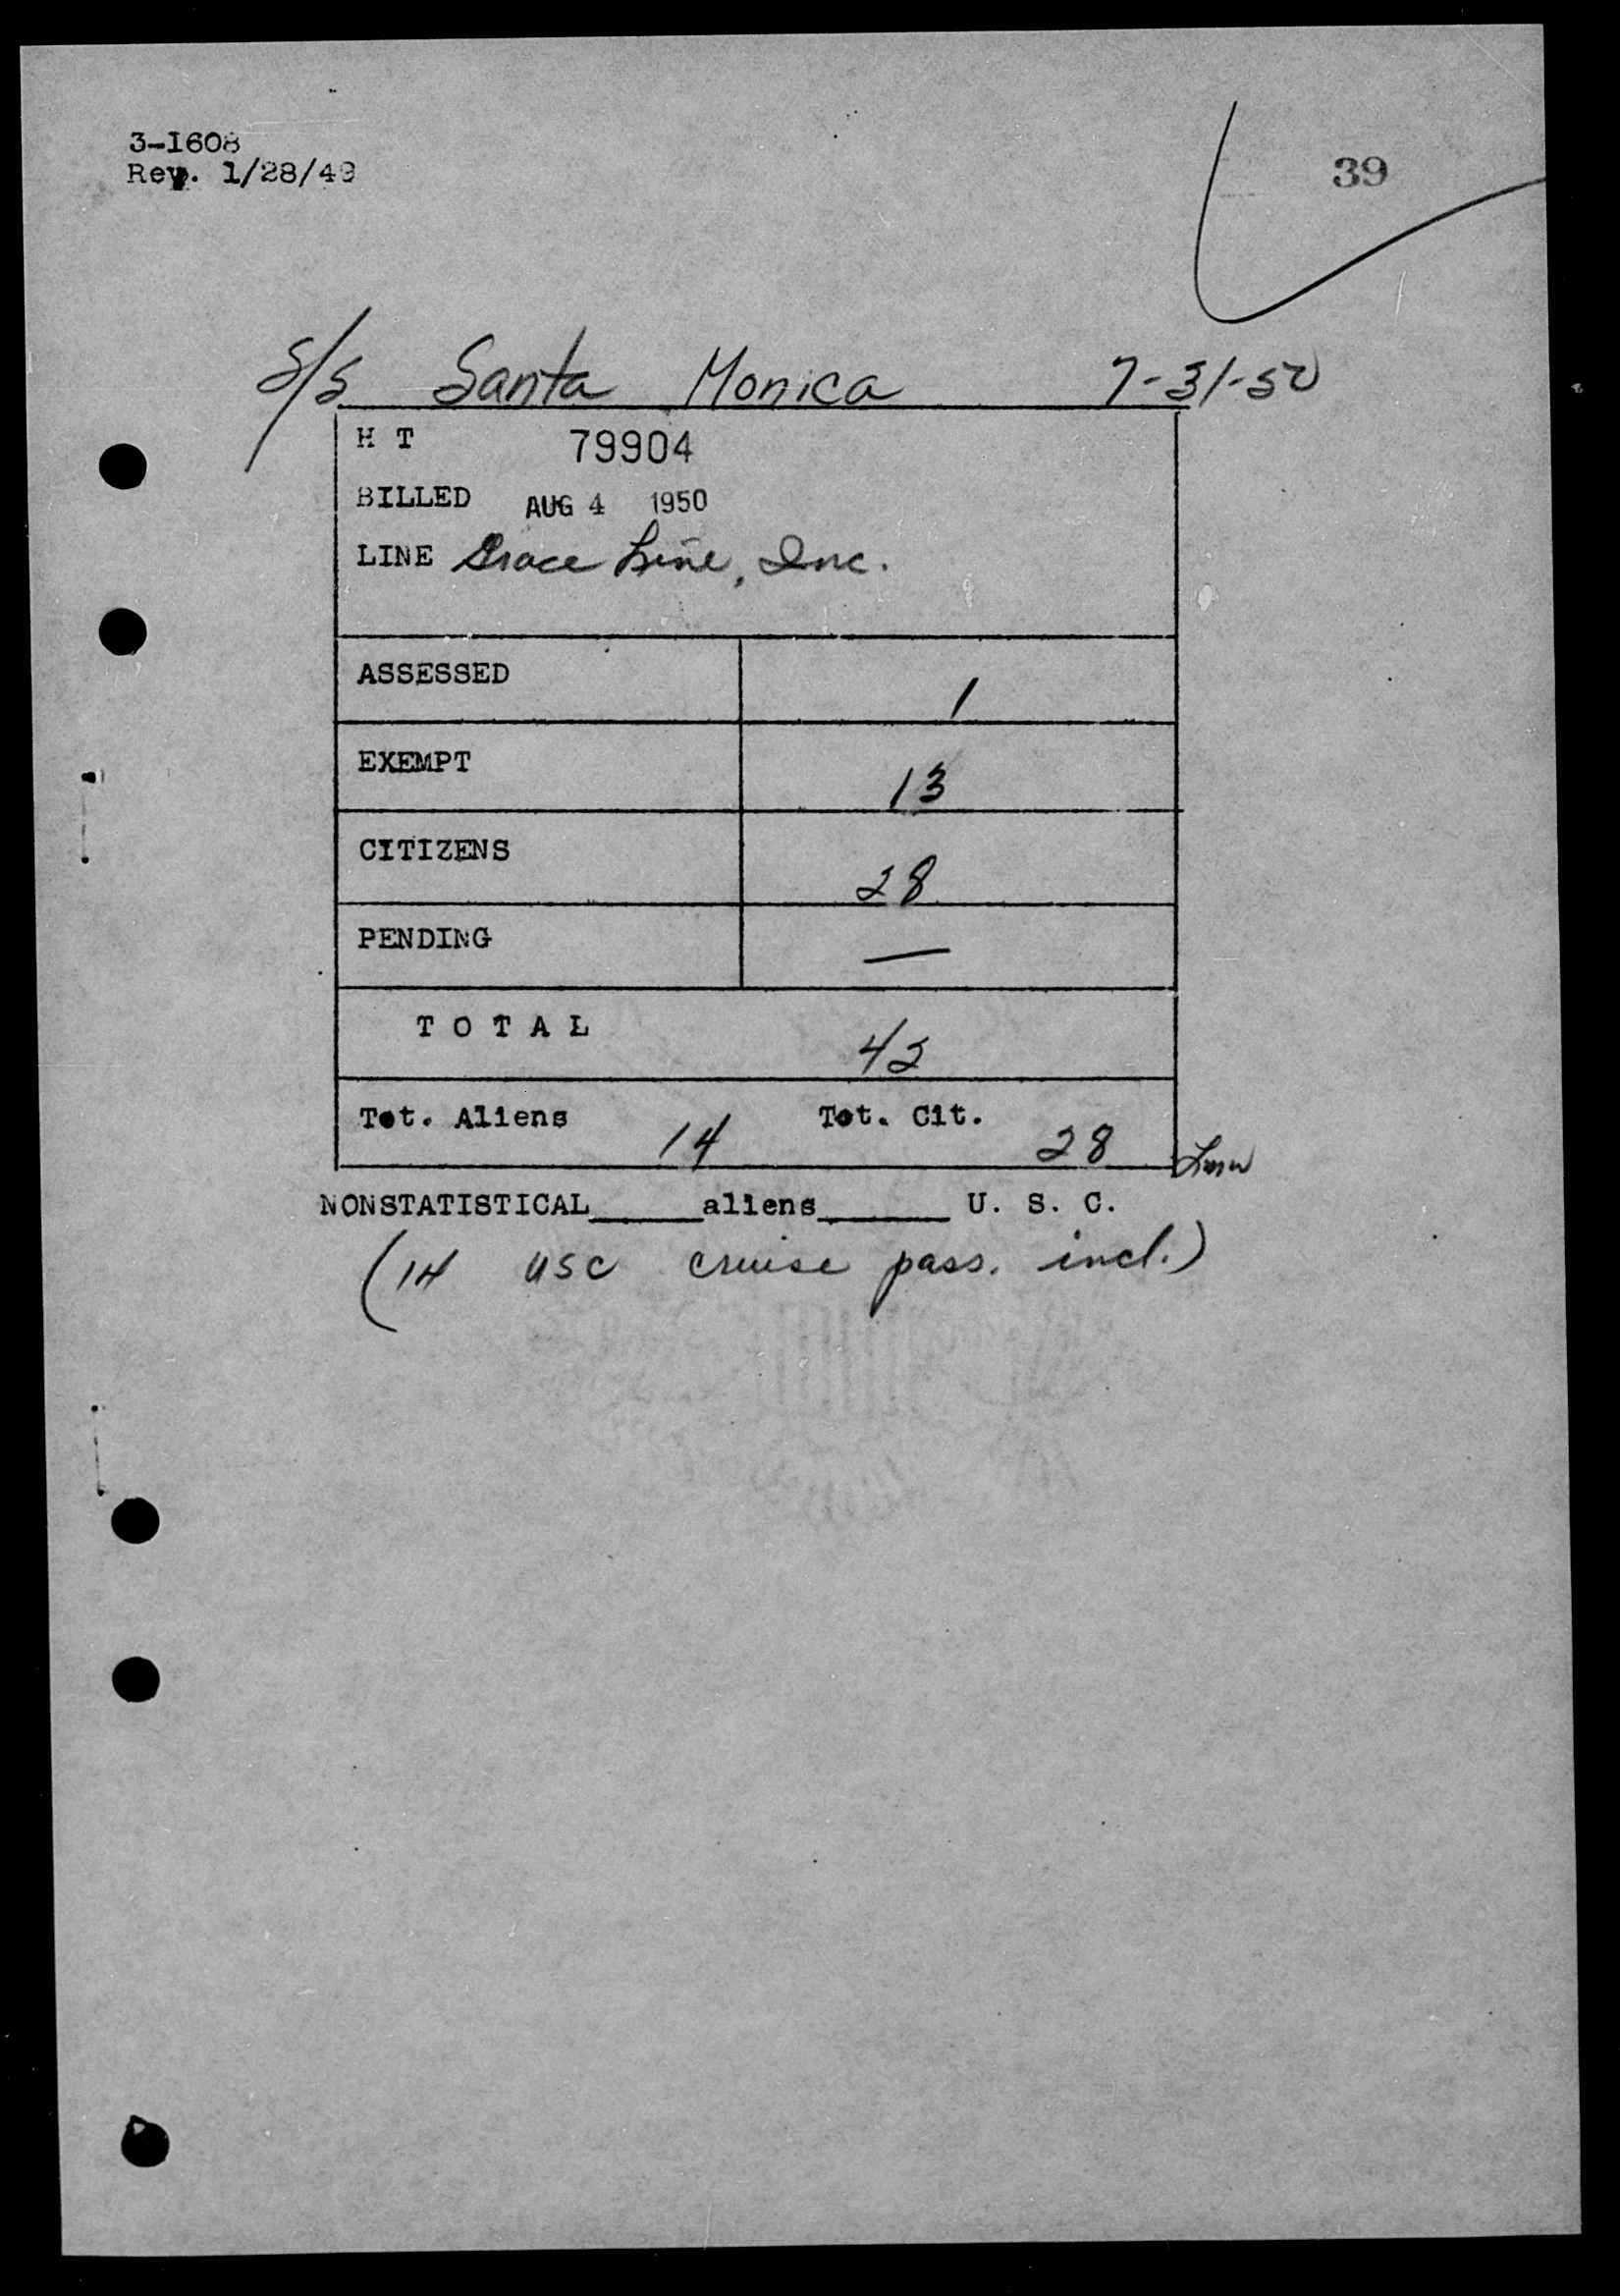 3-I608
Rev. 1/28/49
39
S/S Santa Monica 7-31-50
H T 79904
BILLED AUG 4 1950
LINE Grace Line, Inc.
ASSESSED 1
EXEMPT 13
CITIZENS 28
PENDING —
T O T A L 42
Tot. Aliens 14 Tot. Cit. 28
NONSTATISTICAL_____aliens______ U. S. C.
(14 USC cruise pass. incl.)